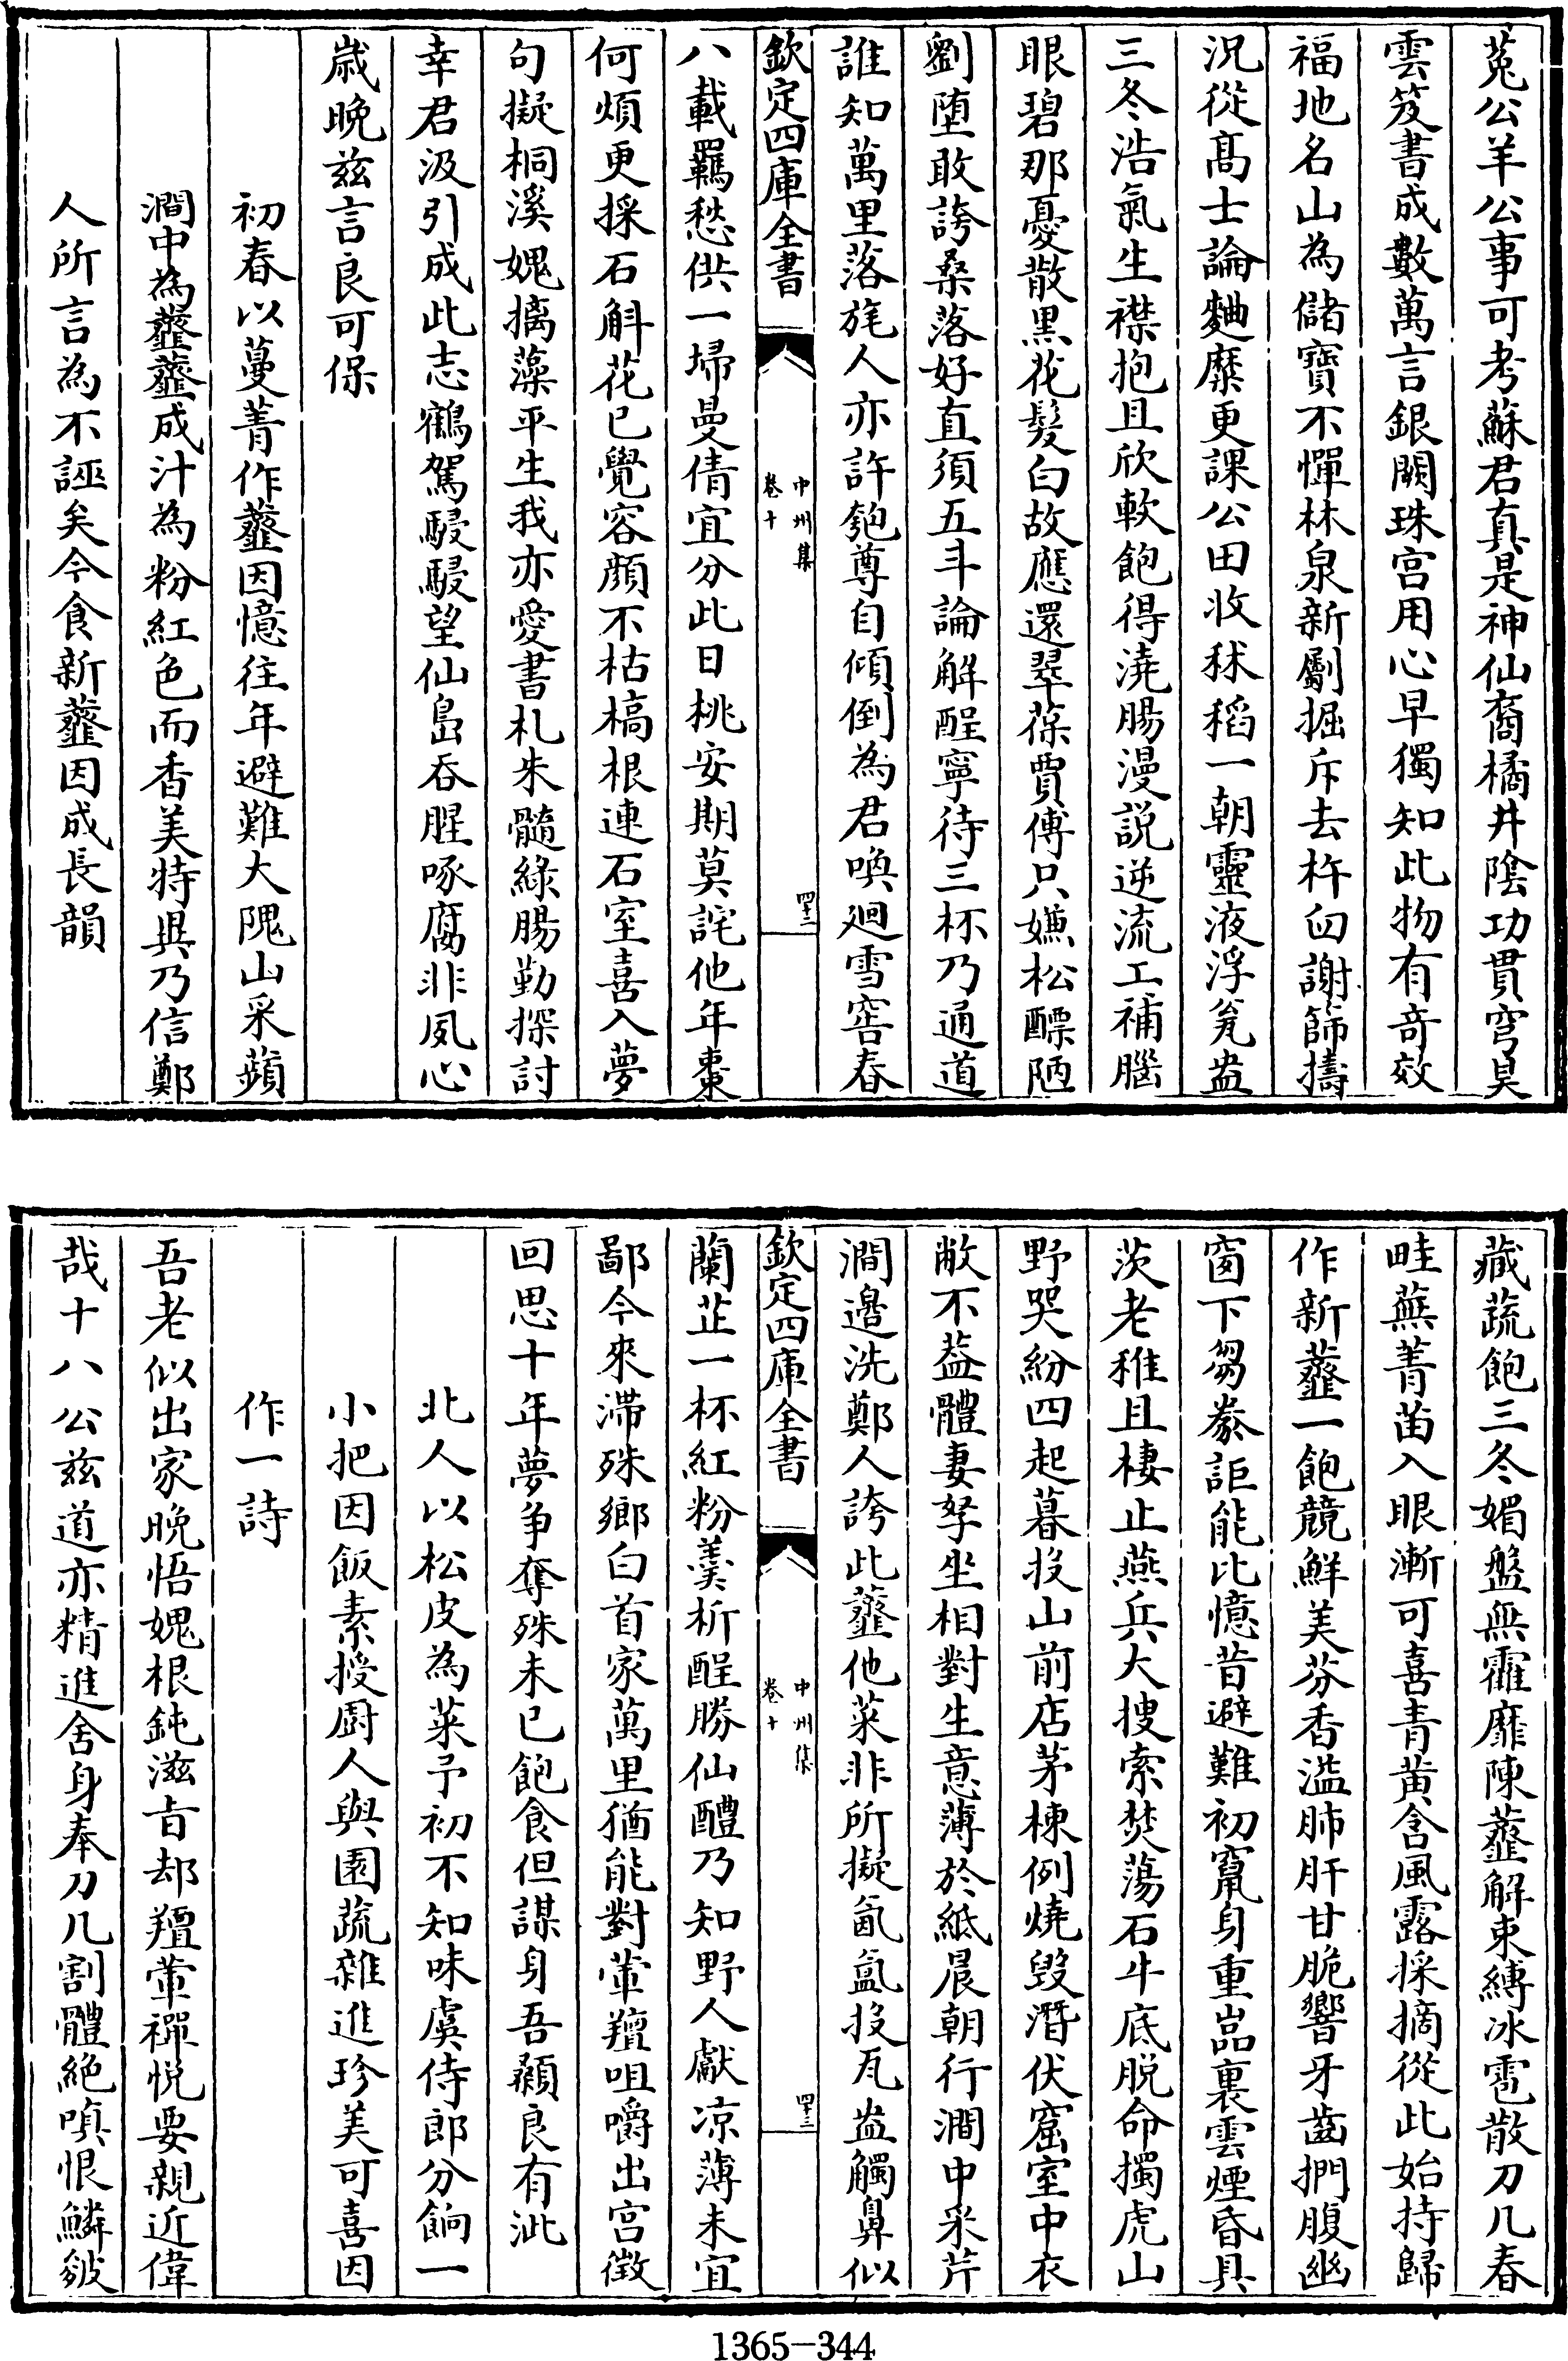 菟公羊公事可考蘇君真是神仙裔橘井陰功貫穹昊
雲笈書成數萬言銀闕珠宫用心早獨知此物有竒效
福地名山為儲寳不憚林泉新劚掘斥去杵臼謝篩擣
況從髙士論麯糱更課公田收秫稻一朝靈液浮瓮盎
三冬浩氣生襟抱且欣軟飽得澆腸漫説逆流工補腦
眼碧那憂散黒花髮白故應還翠葆賈傅只嫌松醥陋
劉墮敢誇桑落好直須五斗論解酲寧待三杯乃通道
誰知萬里落旄人亦許匏尊自傾倒為君喚廻雪窖春
欽定四庫全書
中州集
卷十
四十二
八載羈愁供一埽曼倩宜分此日桃安期莫詫他年棗
何煩更採石斛花已覺容顔不枯槁根連石室喜入夢
句擬桐溪媿摛藻平生我亦愛書札朱髓緑腸勤探討
幸君汲引成此志鶴駕駸駸望仙島吞腥啄腐非夙心
嵗晚兹言良可保
初春以蔓菁作虀因憶往年避難大隗山采蘋
澗中為虀虀成汁為粉紅色而香美特異乃信鄭
人所言為不誣矣今食新虀因成長韻
藏蔬飽三冬媚盤無霍靡陳虀解束縛冰雹散刀几春
畦蕪菁苗入眼漸可喜青黄含風露採摘從此始持歸
作新虀一飽競鮮美芬香溢肺肝甘脆響牙齒捫腹幽
窗下芻豢詎能比憶昔避難初竄身重嵓裏雲煙昏具
茨老稚且棲止燕兵大搜索焚蕩石牛底脱命獨虎山
野哭紛四起暮投山前店茅棟例燒毁潛伏窟室中衣
敝不葢體妻孥坐相對生意薄於紙晨朝行澗中采芹
澗邉洗鄭人誇此虀他菜非所擬氤氲投瓦盎觸鼻似
欽定四庫全書
中州集
卷十
四十三
蘭芷一杯紅粉羮析酲勝仙醴乃知野人獻凉薄未宜
鄙今來滯殊鄉白首家萬里猶能對葷羶咀嚼出宫徵
回思十年夢争奪殊未已飽食但謀身吾顙良有泚
北人以松皮為菜予初不知味虞侍郎分餉一
小把因飯素授廚人與園蔬雜進珍美可喜因
作一詩
吾老似出家晚悟媿根鈍滋㫖却羶葷禪悦要親近偉
哉十八公兹道亦精進舍身奉刀几割體絶嗔恨鱗皴
1365-344